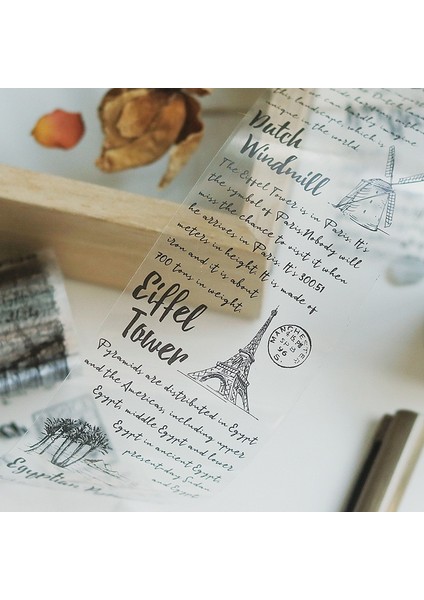 unique in the world.
Dutch
Windmill
The Eiffel Tower is in Paris. It's
the symbol of Paris.Nobody will
miss the chance to visit it when
he arrives in Paris. It's 300.51
meters in height. It is made of
iron and it is about
700 tons in weight.
Eiffel
Tower
MANCHESTER
96
Pyramids are distributed in Egypt
and the Americas, including upper
Egypt, middle Egypt and lower
Egypt in ancient Egypt,
present-day Sudan
and Egypt.
Egyptian